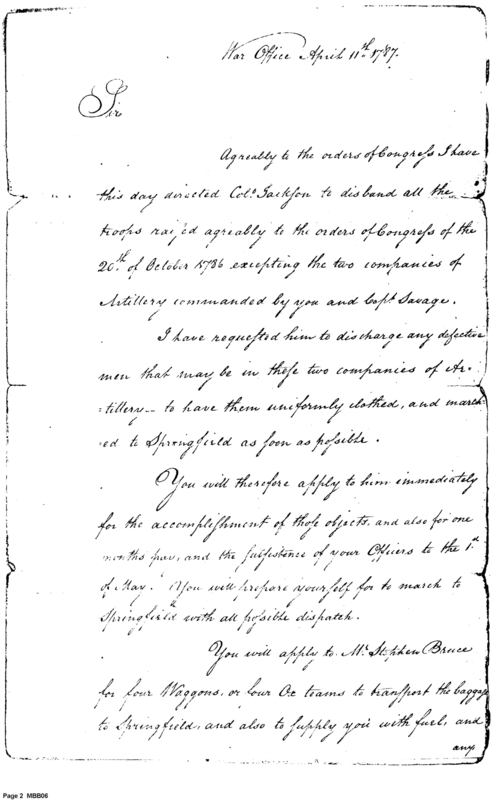 War Office April 11th 1787.
Sir
Agreably to the orders of Congress I have
this day directed Colo. Jackson to disband all the
troops raised agreably to the orders of Congress of the
20th. of October 1786 excepting the two companies of
Artillery commanded by you and Capt Savage.
I have requested him to discharge any defective
men that may be in these two companies of Ar-
-tillery — to have them uniformly clothed, and march-
-ed to Springfield as soon as possible.
You will therefore apply to him immediately
for the accomplishment of those objects, and also for one
months pay, and the subsistence of your Officers to the 1st
of May. You will prepare yourself for to march to
Springfield with all possible dispatch.
You will apply to Mr. Stephen Bruce
for four Waggons, or four Ox teams to transport the baggage
to Springfield, and also to supply you with fuel, and
any
Page 2 MBB06